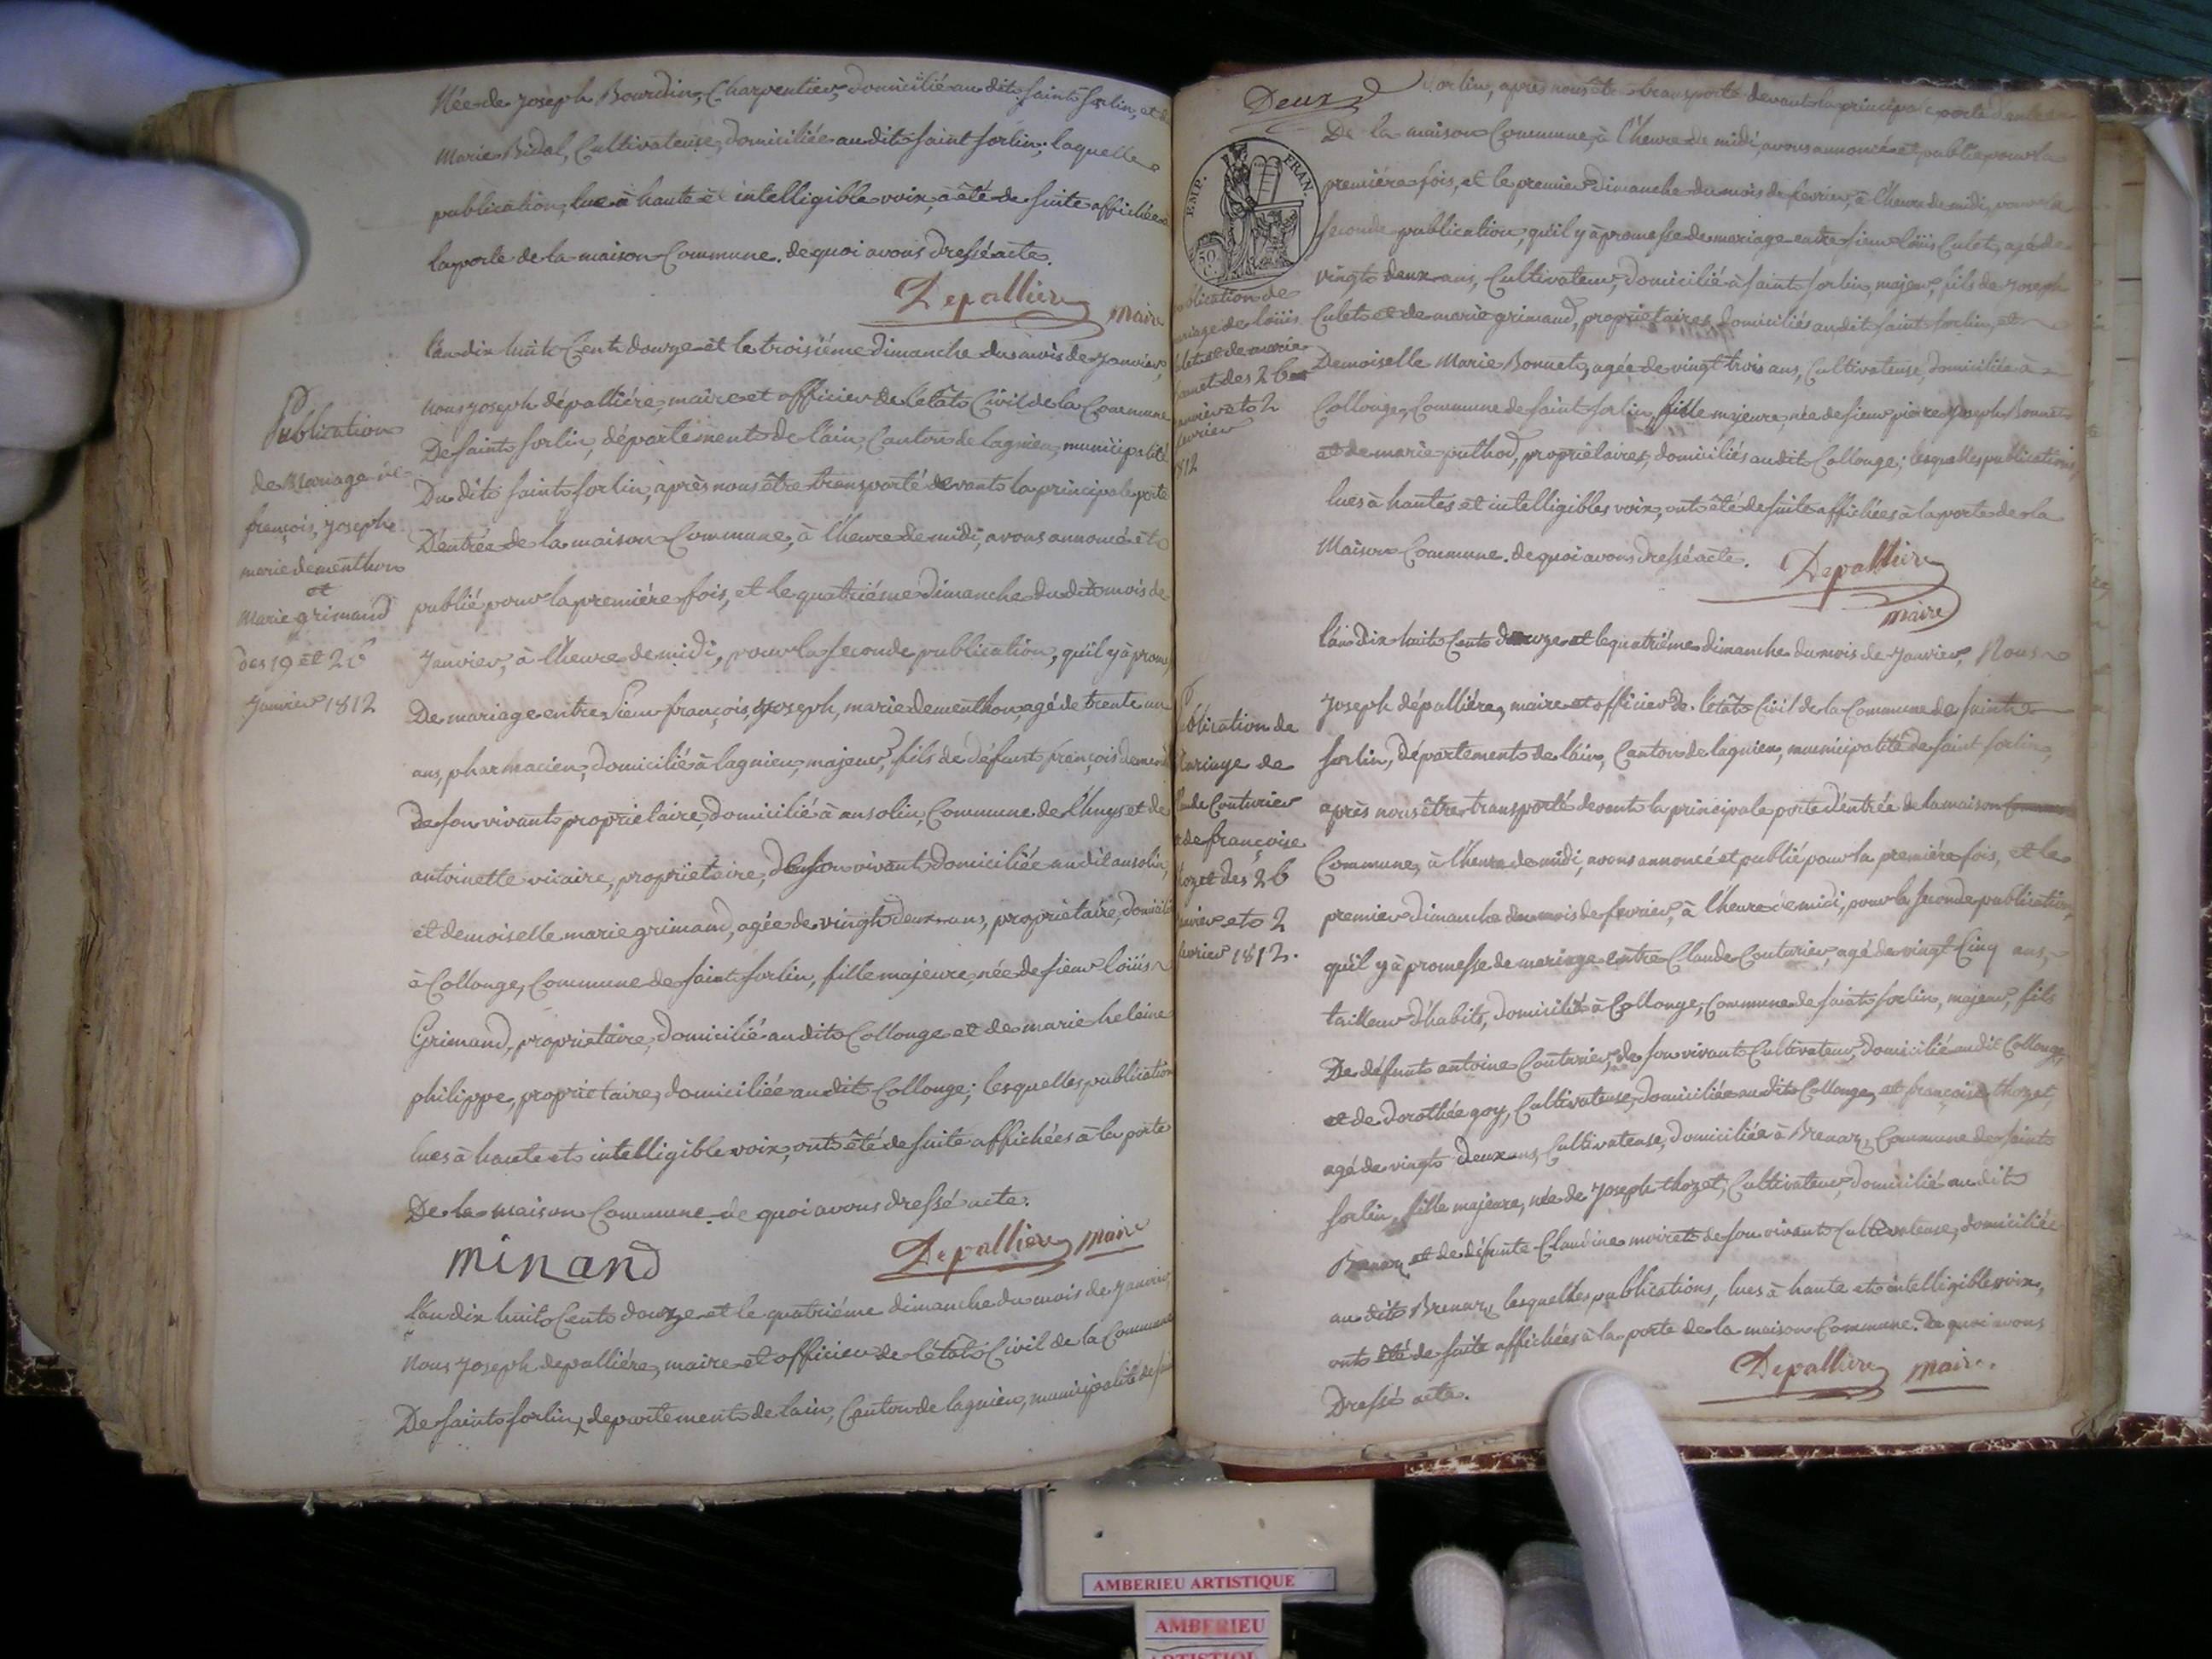 Née de joseph Bourdin, Charpentier, domicilié au dit saint sorlin, et de
Marie Bidal, Cultivateuse, domiciliée au dit saint sorlin; laquelle
publication, lue à haute et intelligible voix, à été de suite affichée
la porte de la maison Commune. de quoi avons dressé acte.
Depalliere maire
l'an dix huit Cent douze et le troisiéme dimanche du mois de janvier,
nous joseph dépalliére, maire et officier de l'état Civil de la Commune
De saint sorlin, département de l'ain, Canton de lagnieu, municipalité
Du dit saint sorlin, après nous être transporté devant la principale porte
D'entrée de la maison Commune, à l'heure de midi, avons annoncé et
publié pour la premiére fois, et le quatriéme dimanche du dit mois de
janvier, à l'heure de midi, pour la seconde publication, qu'il y à prom
De mariage entre sieur françois, joseph, marie dementhon, agé de trente un
ans, pharmacien, domicilié à lagnieu, majeur, fils de défunt françois dement
De son vivant propriétaire, domicilié à ansolin, Commune de l'huys et de
antoinette vicaire, propriétaire, de son vivant domiciliée au dit ansolin,
et demoiselle marie grimand, agée de vingt deux ans, propriétaire, domicili
à Collonge, Commune de saint sorlin, fille majeure, née de sieur loüis
Grimand, propriétaire, domicilié au dit Collonge et de marie heleine
philippe, propriétaire, domiciliée au dit Collonge; lesquelles publication
lues à haute et intelligible voix, ont été de suite affichées à la porte
De la maison Commune. de quoi avons dressé acte.
minand Depalliere maire
l'an dix huit Cent douze et le quatriéme dimanche du mois de janvier
nous joseph depalliére, maire et officier de l'état Civil de la Commune
De saint sorlin, département de l'ain, Canton de lagnieu, municipalité de
Publication
de Mariage de
françois, joseph
marie dementhon
et
Marie grimand
des 19 et 26
janvier 1812
Deux
sorlin, après nous être transporté devant la principale porte d'entrée
De la maison Commune, à l'heure de midi, avons annoncé et publié pour la
premiére fois, et le premier dimanche du mois de fevrier, à l'heure de midi, pour la
seconde publication, qu'il y à promesse de mariage entre sieur loüis Culet, agé de
vingt deux ans, Cultivateur, domicilié à saint sorlin, majeur, fils de joseph
Culet et de marie grimand, propriétaires, domiciliés au dit saint sorlin, et
Demoiselle Marie Bonnet, agée de vingt trois ans, Cultivateuse, domiciliée à
Collonge, Commune de saint sorlin, fille majeure, née de sieur pierre joseph Bonnet
et de marie puthod, propriétaires, domiciliés au dit Collonge; lesquelles publications,
lues à hautes et intelligibles voix, ont été de suite affichées à la porte de la
Maison Commune. de quoi avons dressé acte. Depalliere
maire
EMP. FRAN.
50 C.
blication de
riage de loüis
let et de marie
onnet des 26
janvier et 2
fevrier
1812
l'an dix huit Cent douze et le quatriéme dimanche du mois de janvier, Nous
joseph dépalliére, maire et officier de l'état Civil de la Commune de saint
sorlin, département de l'ain, Canton de lagnieu, municipalité de saint sorlin,
après nous être transporté devant la principale porte d'entrée de la maison
Commune, à l'heure de midi, avons annoncé et publié pour la premiére fois, et le
premier dimanche du mois de fevrier, à l'heure de midi, pour la seconde publication,
qu'il y à promesse de mariage entre Claude Couturier, agé de vingt Cinq ans,
tailleur d'habits, domicilié à Collonge, Commune de saint sorlin, majeur, fils
De défunt antoine Couturier, de son vivant Cultivateur, domicilié au dit Collonge,
et de dorothée goy, Cultivateuse, domiciliée au dit Collonge, et françoise thozet,
agé de vingt deux ans, Cultivateuse, domiciliée à Brenaz, Commune de saint
sorlin, fille majeure, née de joseph thozet, Cultivateur, domicilié au dit
Brenaz et de défunte Claudine moiret de son vivant Cultivateuse, domiciliée
au dit Brenaz, lesquelles publications, lues à haute et intelligible voix,
ont été de suite affichées à la porte de la maison Commune. De quoi avons
Dressé acte. Depalliere maire.
ublication de
Mariage de
laude Couturier
et de françoise
thozet des 26
janvier et 2
fevrier 1812.
AMBERIEU ARTISTIQUE
AMBERIEU
ARTISTIQUE